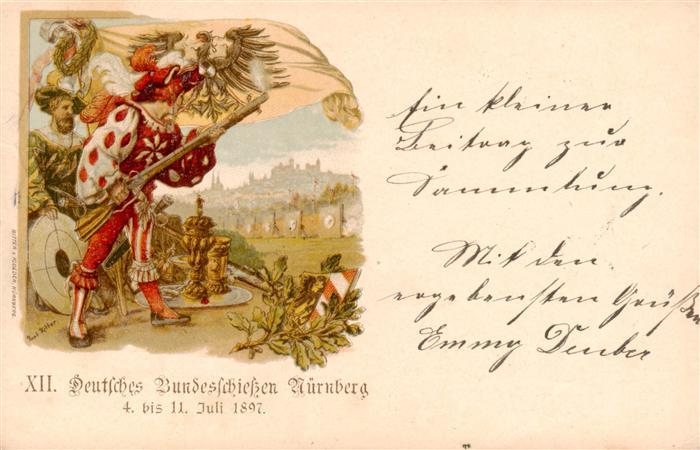 Ein kleiner
Beitrag zur
Sammlung.
Mit den
ergebensten Grüßen
Emmy Deuber
Paul Ritter
XII. Deutsches Bundesschießen Nürnberg
4. bis 11. Juli 1897.